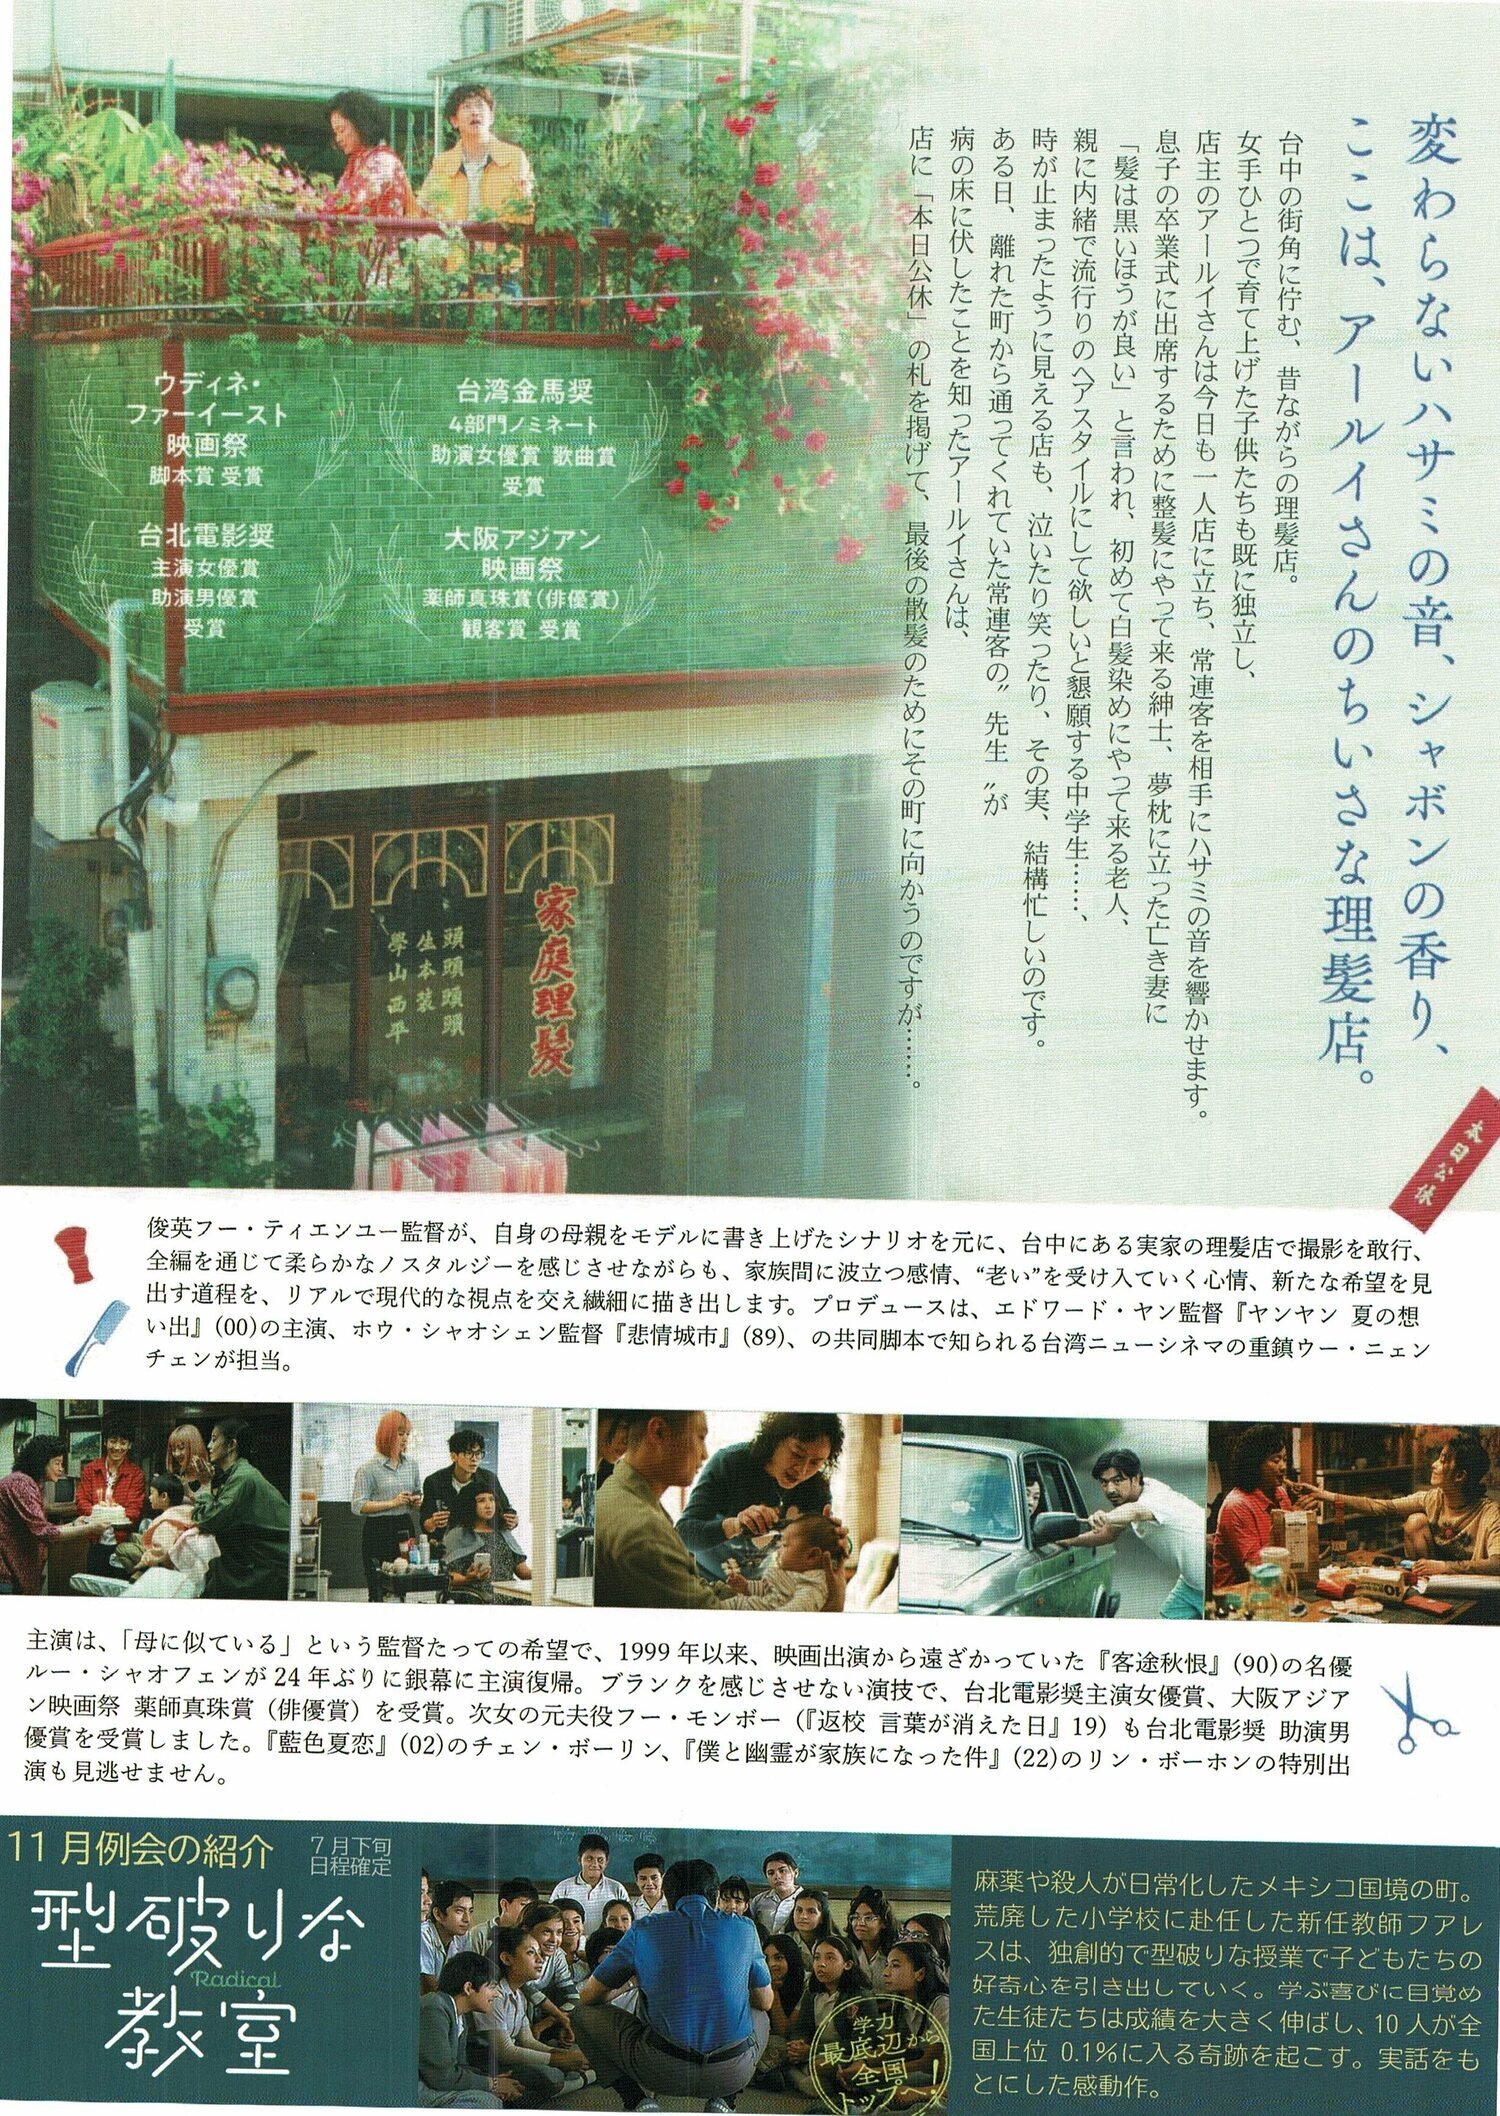 変わらないハサミの音、シャボンの香り、
ここは、アールイさんのちいさな理髪店。
台中の街角に佇む、昔ながらの理髪店。
女手ひとつで育て上げた子供たちも既に独立し、
店主のアールイさんは今日も一人店に立ち、常連客を相手にハサミの音を響かせます。
息子の卒業式に出席するために整髪にやって来る紳士、夢枕に立った亡き妻に
「髪は黒いほうが良い」と言われ、初めて白髪染めにやって来る老人、
親に内緒で流行りのヘアスタイルにして欲しいと懇願する中学生……、
時が止まったように見える店も、泣いたり笑ったり、その実、結構忙しいのです。
ある日、離れた町から通ってくれていた常連客の〝先生〟が
病の床に伏したことを知ったアールイさんは、
店に「本日公休」の札を掲げて、最後の散髪のためにその町に向かうのですが……。
ウディネ・
ファーイースト
映画祭
脚本賞 受賞
台湾金馬奨
4部門ノミネート
助演女優賞 歌曲賞
受賞
台北電影奨
主演女優賞
助演男優賞
受賞
大阪アジアン
映画祭
薬師真珠賞(俳優賞)
観客賞 受賞
家庭理髮
頭頭頭頭
生本裝
學山西平
本日公休
俊英フー・ティエンユー監督が、自身の母親をモデルに書き上げたシナリオを元に、台中にある実家の理髪店で撮影を敢行、
全編を通じて柔らかなノスタルジーを感じさせながらも、家族間に波立つ感情、“老い”を受け入れていく心情、新たな希望を見
出す道程を、リアルで現代的な視点を交え繊細に描き出します。プロデュースは、エドワード・ヤン監督『ヤンヤン 夏の想
い出』(00)の主演、ホウ・シャオシェン監督『悲情城市』(89)、の共同脚本で知られる台湾ニューシネマの重鎮ウー・ニェン
チェンが担当。
主演は、「母に似ている」という監督たっての希望で、1999年以来、映画出演から遠ざかっていた『客途秋恨』(90)の名優
ルー・シャオフェンが24年ぶりに銀幕に主演復帰。ブランクを感じさせない演技で、台北電影奨主演女優賞、大阪アジア
ン映画祭 薬師真珠賞（俳優賞）を受賞。次女の元夫役フー・モンボー（『返校 言葉が消えた日』19）も台北電影奨 助演男
優賞を受賞しました。『藍色夏恋』(02)のチェン・ボーリン、『僕と幽霊が家族になった件』(22)のリン・ボーホンの特別出
演も見逃せません。
11月例会の紹介
7月下旬
日程確定
型破りな
Radical
教室
学力
最底辺から
全国
トップへ!
麻薬や殺人が日常化したメキシコ国境の町。
荒廃した小学校に赴任した新任教師フアレ
スは、独創的で型破りな授業で子どもたちの
好奇心を引き出していく。学ぶ喜びに目覚め
た生徒たちは成績を大きく伸ばし、10人が全
国上位 0.1%に入る奇跡を起こす。実話をも
とにした感動作。